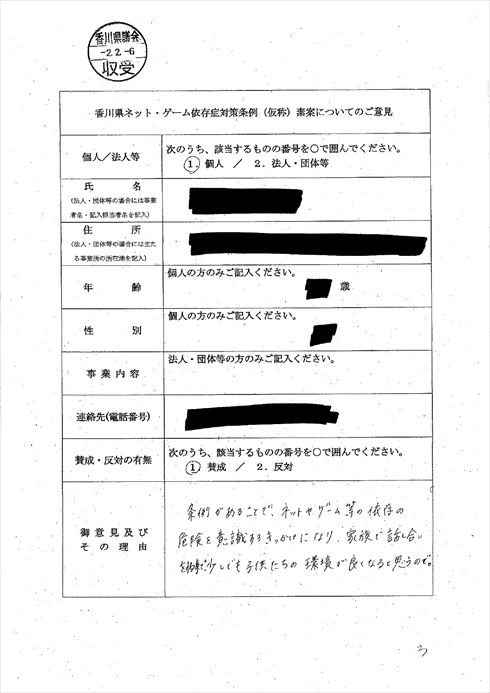 香川県議会
-2.2.-6
収受
香川県ネット・ゲーム依存症対策条例（仮称）素案についてのご意見
個人／法人等
次のうち、該当するものの番号を○で囲んでください。
1．個人 ／ 2．法人・団体等
氏 名
(法人・団体等の場合には事業
者名・記入担当者名を記入)
住 所
(法人・団体等の場合には主た
る事業所の所在地を記入)
年 齢
個人の方のみご記入ください。
歳
性 別
個人の方のみご記入ください。
事業内容
法人・団体等の方のみご記入ください。
連絡先(電話番号)
賛成・反対の有無
次のうち、該当するものの番号を○で囲んでください。
1 賛成 ／ 2．反対
御意見及び
その理由
条例があることで、ネットやゲーム等の依存の
危険を意識するきっかけになり、家族で話し合い
少しでも子供たちの環境が良くなると思うので。